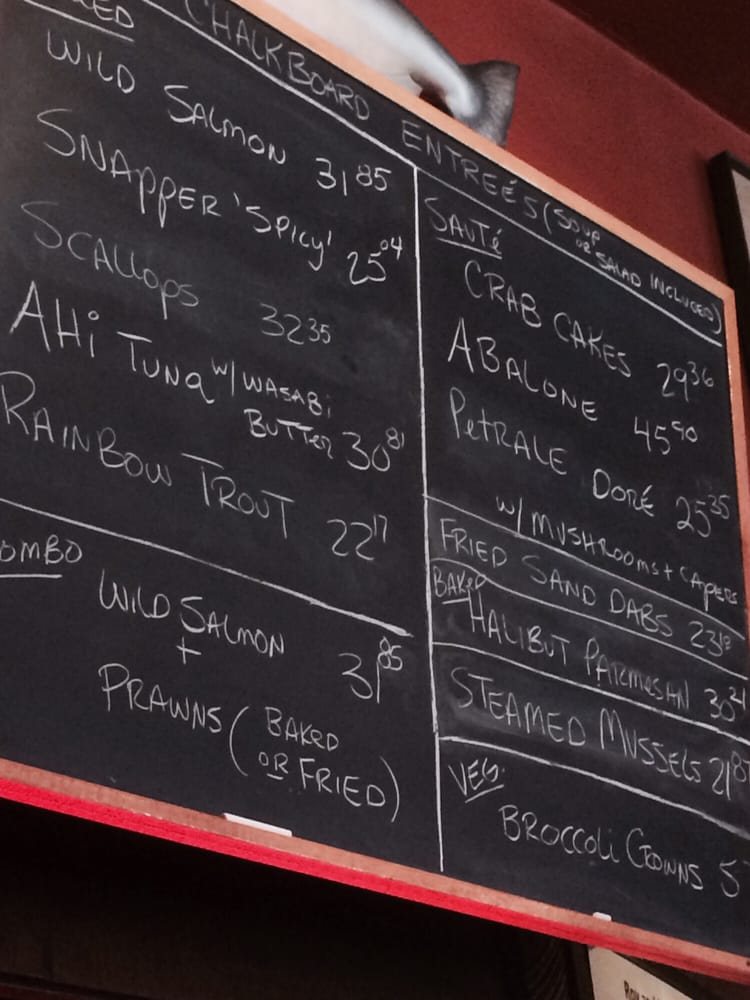 CHALKBOARD ENTREÉS (SOUP
OR SALAD INCLUDED)
WILD SALMON 31 85
SNAPPER 'SPICY' 25 04
SCALLOPS 32 35
AHi TUNA W/ WASABi
BUTTER 30 81
RAINBOW TROUT 22 17
OMBO
WILD SALMON 31 85
+
PRAWNS (BAKED
OR FRIED)
SAUTÉ
CRAB CAKES 29 36
ABALONE 45 90
PETRALE DORÉ 25 35
W/ MUSHROOMS + CAPERS
FRIED SAND DABS
BAKED
HALIBUT PARMESAN 30 21
STEAMED MUSSELS 21 87
VEG.
BROCCOLI CROWNS 5